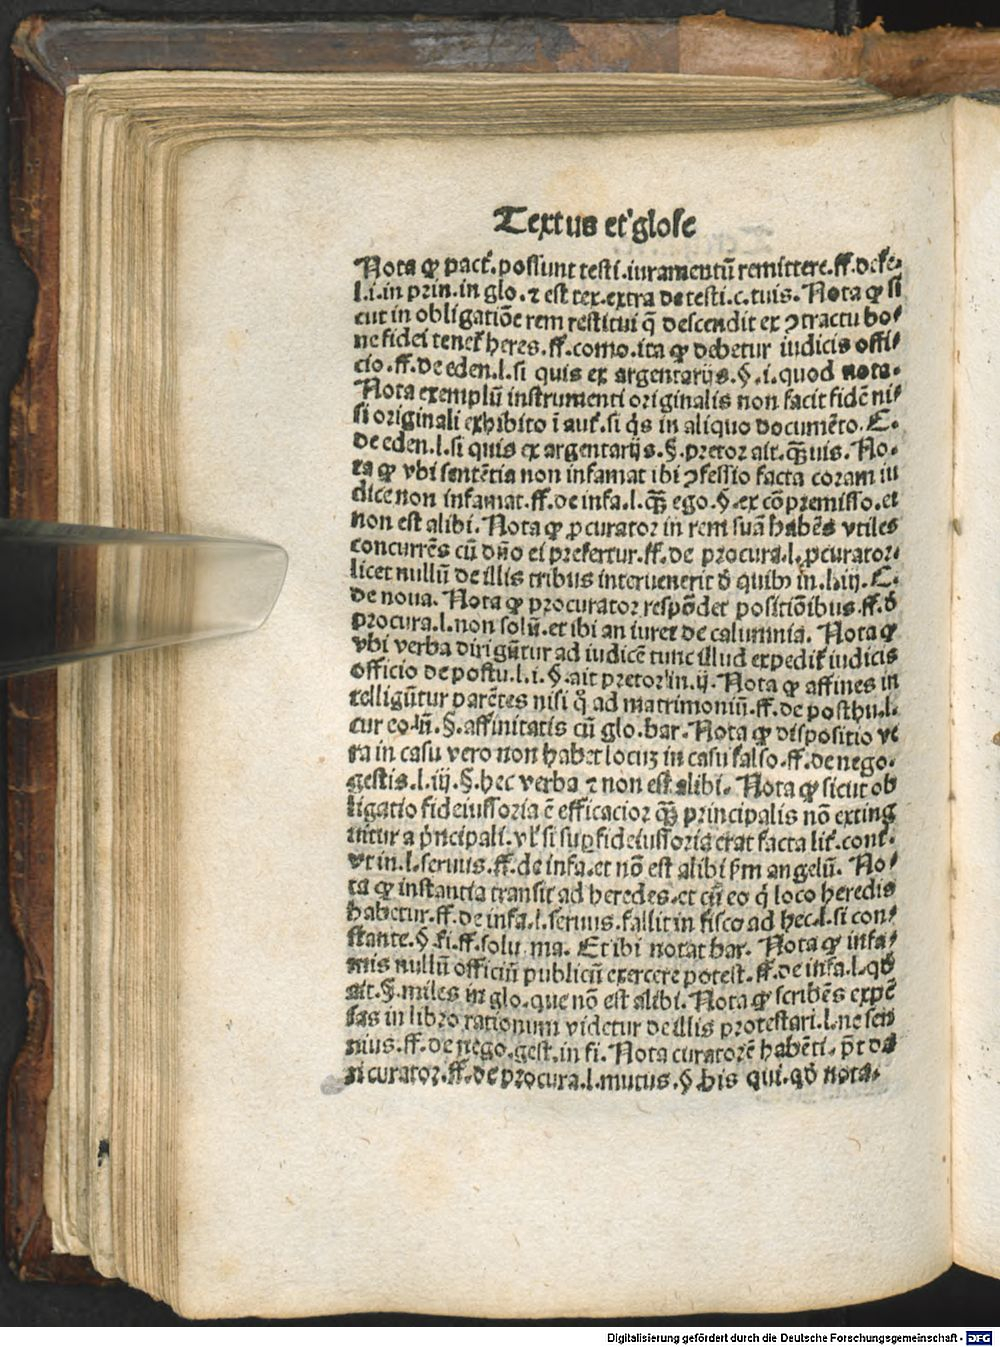 Textus et glose
Nota ꝙ pact̃.possunt testi.iuramentũ remittere.ff.de fe.
l.i.in prin.in glo.⁊ est tex.extra de testi.c.tuis.Nota ꝙ si
cut in obligatiõe rem restitui q̃ descendit ex ↄtractu bo⸗
ne fidei tenet̃ heres.ff.como.ita ꝙ debetur iudicis offi⸗
cio.ff.de eden.l.si quis ex argentarijs.§.i.quod nota.
Nota exemplũ instrumenti originalis non facit fidẽ ni⸗
si originali exhibito ĩ aut̃.si q̇s in aliquo documẽto.C.
de eden.l.si quis ex argentarijs.§.pretor ait.q̃uis.No⸗
ta ꝙ vbi sentẽtia non infamat ibi ↄfessio facta coram iu
dice non infamat.ff.de infa.l.q̃ ego.§.ex cõpremisso.et
non est alibi.Nota ꝙ ꝓcurator in rem suã habẽs vtiles
concurrẽs cũ dño ei prefertur.ff.de procura.l.ꝓcurator.
licet nullũ de illis tribus interuenerit đ quibꝰ in.l.iij.C.
de noua. Nota ꝙ procurator respõdet positiõibus.ff.đ
procura.l.non solũ.et ibi an iuret de calumnia. Nota ꝙ
vbi verba dirigũtur ad iudicẽ tunc illud expedit̃ iudicis
officio de postu.l.i.§.ait pretor in.ij.Nota ꝙ affines in
telligũtur parẽtes nisi q̊ ad matrimoniũ.ff.de posthu.l.
cur eo.iñ.§.affinitatis cũ glo.bar.Nota ꝙ dispositio ve
ra in casu vero non habet locuꝫ in casu falso.ff.de nego.
gestis.l.iij.§.hec verba ⁊ non est alibi. Nota ꝙ sicut ob
ligatio fideiussoria ẽ efficacior q̃ principalis nõ exting
uitur a pṅcipali.vl̃ si sup fideiussoria erat facta lit̃.cont̃.
vt in.l.seruus.ff.de infa.et nõ est alibi ẜm angelũ. No⸗
ta ꝙ instantia transit ad heredes.et cũ eo q̇ loco heredis
habetur.ff.de infa.l.seruus.fallit in fisco ad hec.l.si con⸗
stante.§.fi.ff.solu.ma. Et ibi notat bar. Nota ꝙ infa⸗
mis nullũ officiũ publicũ exercere potest.ff.de infa.l.qđ
ait.§.miles in glo.que nõ est alibi.Nota ꝙ scribẽs expẽ
sas in libro rationum videtur de illis protestari.l.ne sen
nius.ff.de nego.gest.in fi.Nota curatorẽ habẽti.p̃t da
ri curator.ff.de procura.l.mutus.§.his qui.qđ nota.
Digitalisierung gefördert durch die Deutsche Forschungsgemeinschaft - DFG